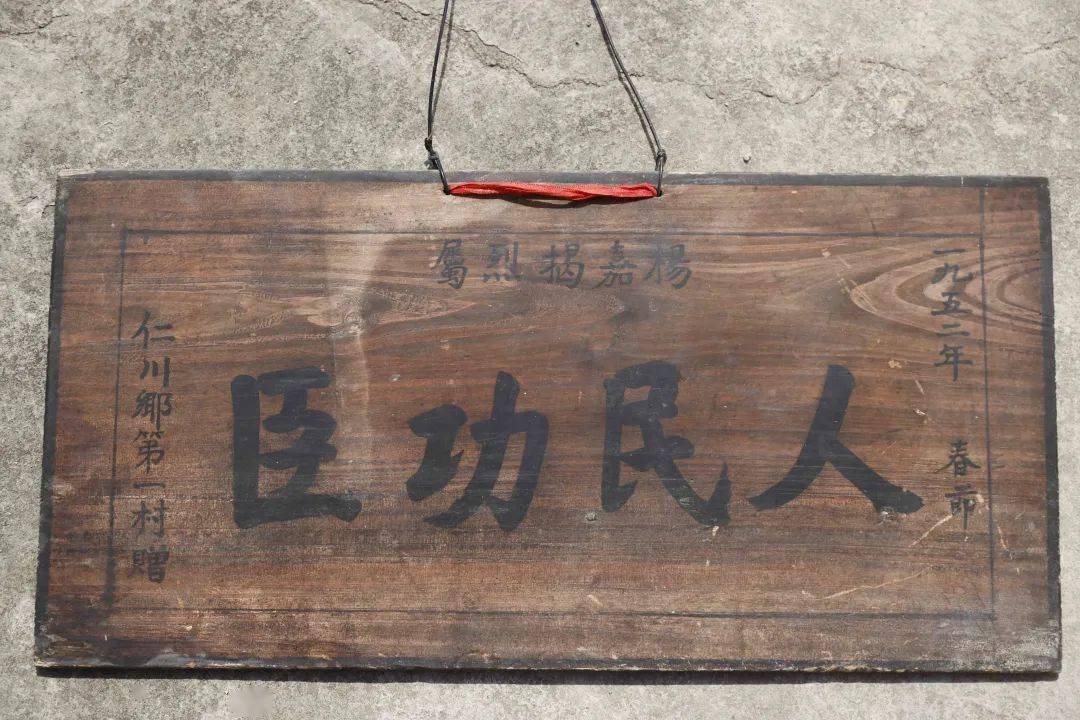 一九五二年 春节
楊嘉揭烈屬
人民功臣
仁川鄉第一村贈